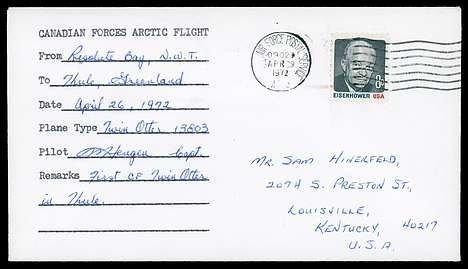 CANADIAN FORCES ARCTIC FLIGHT
From Resolute Bay, N.W.T.
To Thule, Greenland
Date April 26, 1972
Plane Type Twin Otter 13803
Pilot Capt.
Remarks First CF Twin Otter
in Thule.
AIR FORCE POSTAL SERVICE
APR 29
1972
8¢
EISENHOWER USA
Mr. Sam Hinerfeld,
2074 S. Preston St.,
Louisville,
Kentucky, 40217
U.S.A.